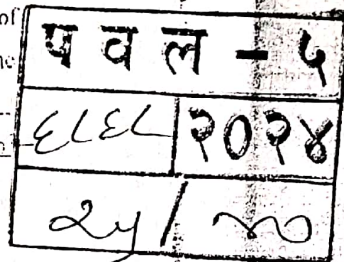 of
प व ल - ५
६८६८ २०२४
२५ / ४०